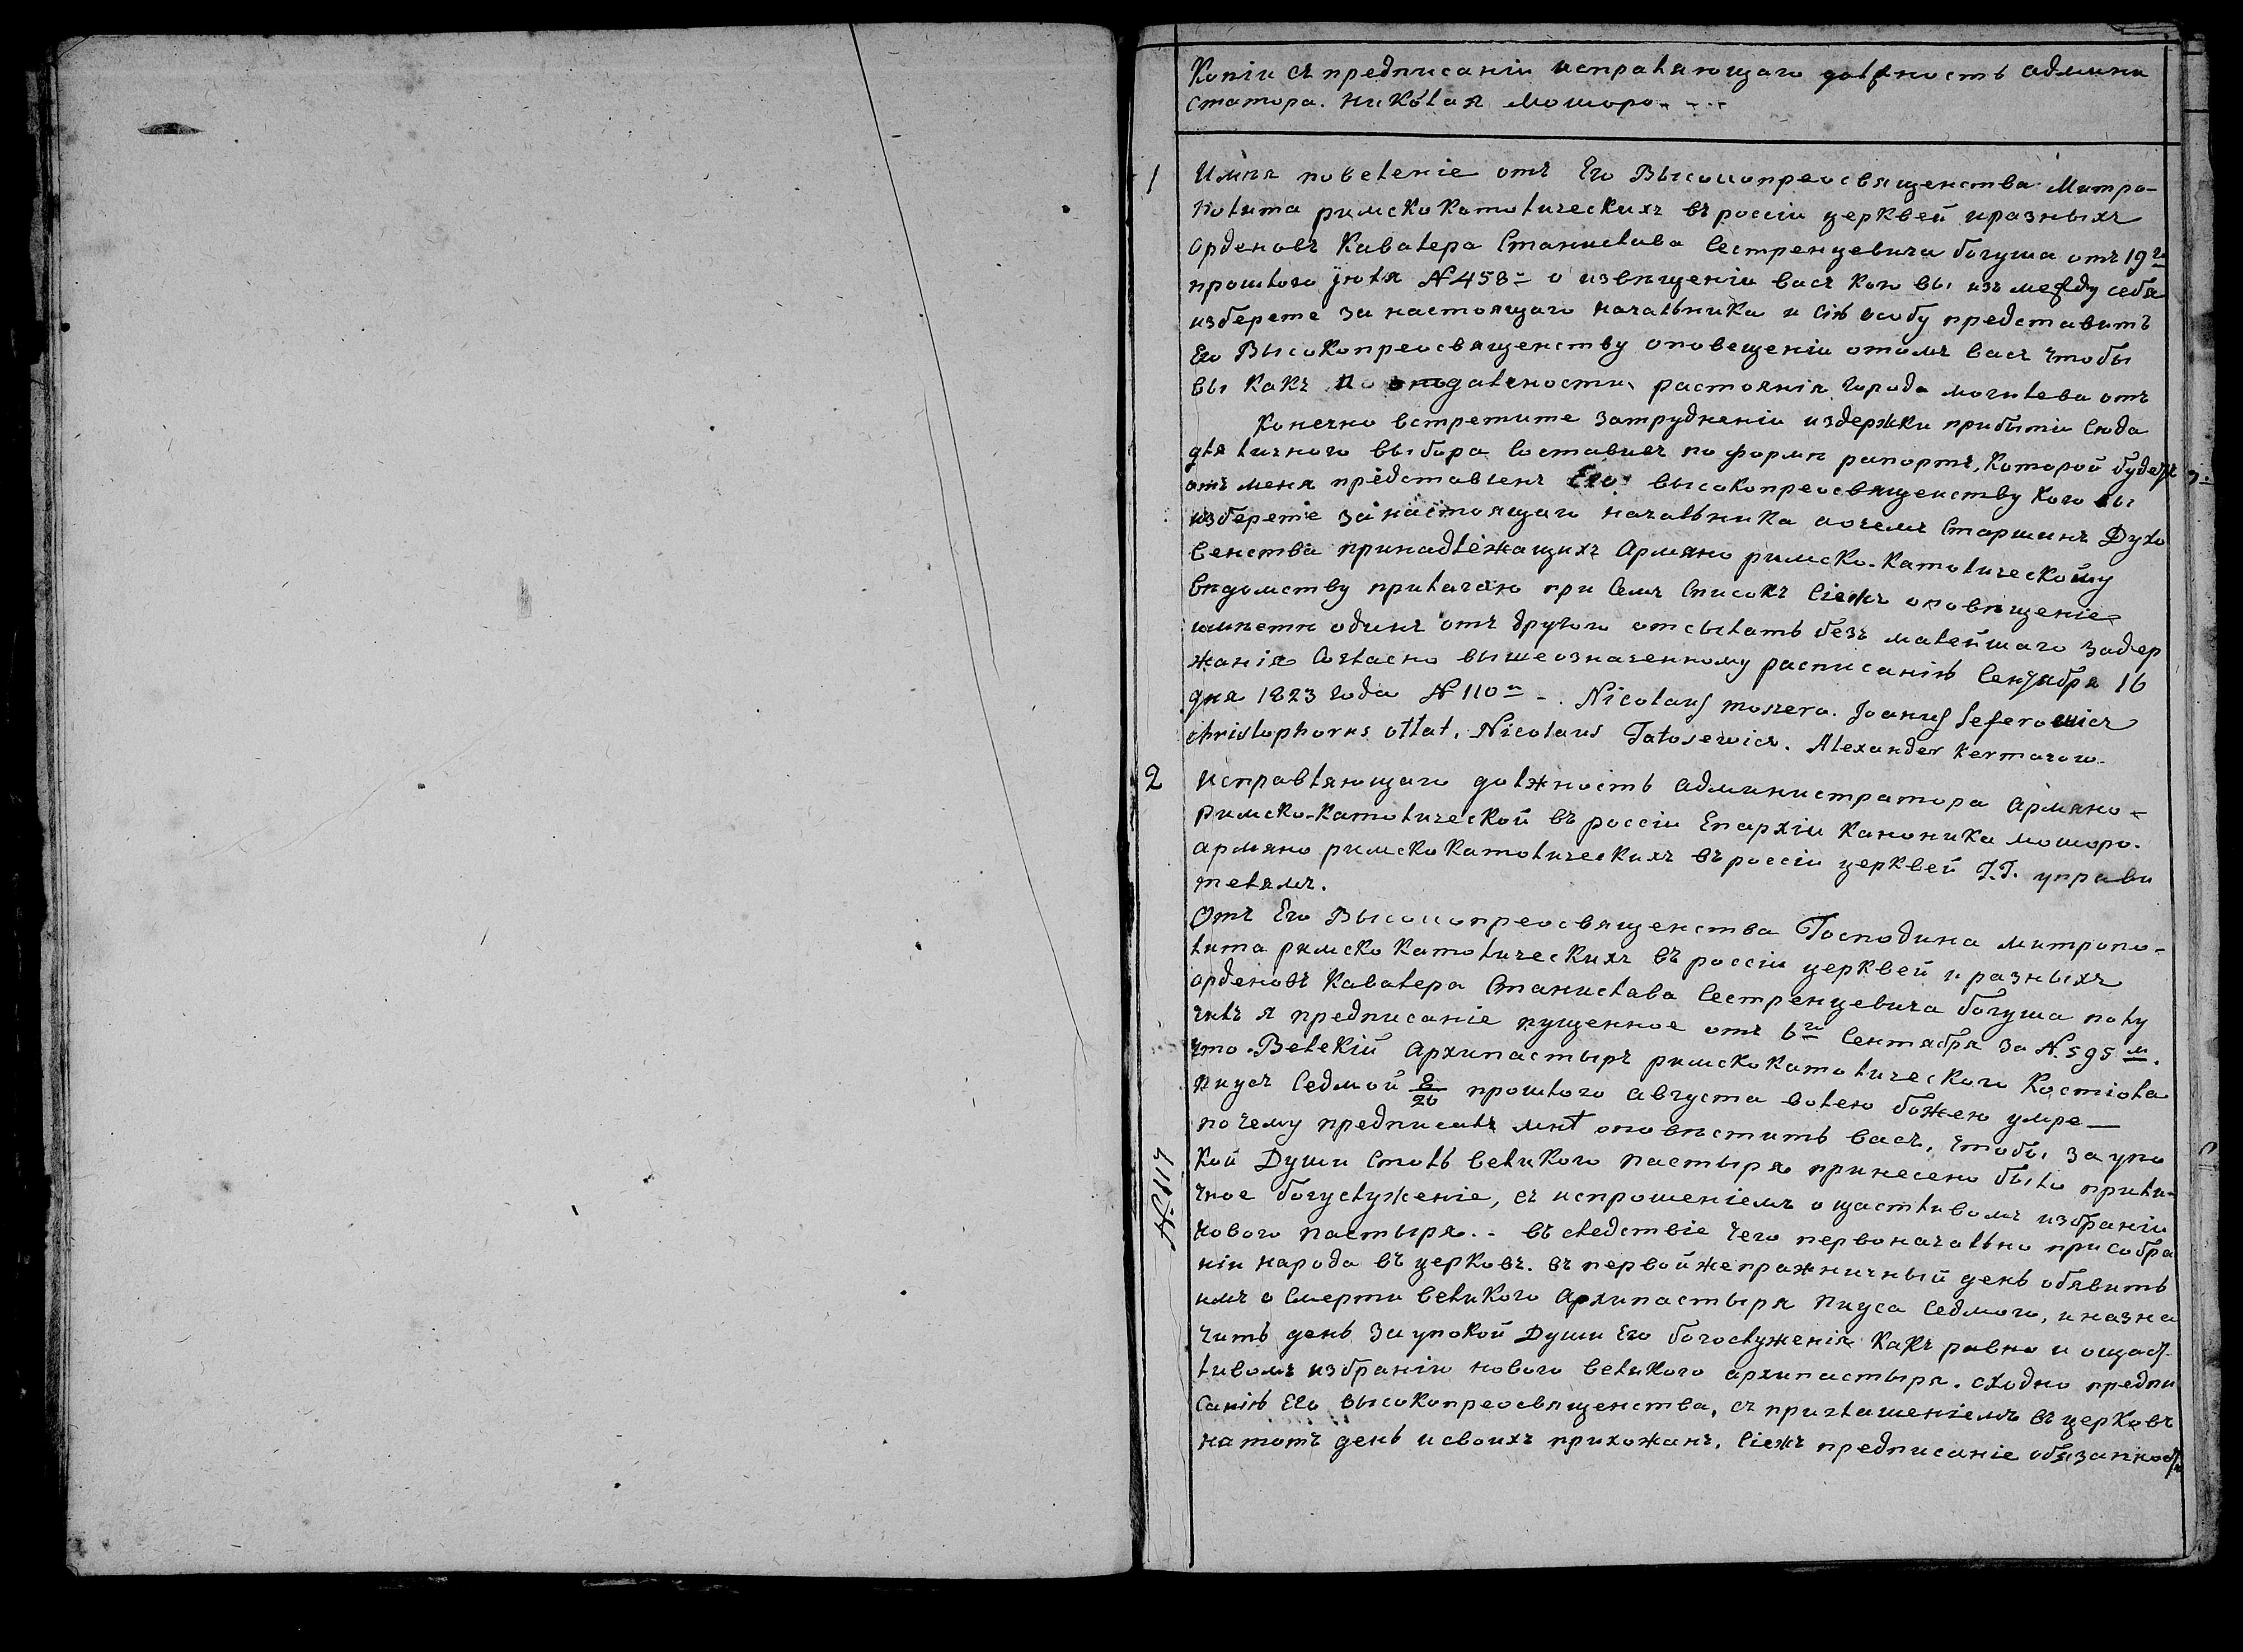 Копіи съ предписаніи исправляющаго должность админи
стратора. николая мошоро. - - -
1 Имѣя повеленіе отъ Его Высокопреосвященства Митро-
полита римско католическихъ въ россіи церквей и разныхъ
орденовъ Кавалера Станислава Сестренцевича богуша отъ 19го
прошлого іюля №458- о извѣщеніи васъ кого вы изъ между себя
изберете за настоящаго начальника и сію особу представить
Его Высокопреосвященству оповещеніи отомъ васъ чтобы
вы какъ по далености растоянія города могилева отъ
Конечно встретите затрудненіи издержки прибытіи сюда
для личного выбора составивъ по формѣ рапортъ, которой будетъ
отъ меня представленъ Его высокопреосвященству кого вы
изберетіе за настоящаго начальника очемъ старшинъ Духо
венства принадлежащихъ Армяно римско-католическому
вѣдомству прилагаю при семъ списокъ сіежъ оповѣщеніе
имѣете одинъ отъ другого отсылать безъ малейшаго задер
жанія согласно вышеозначенному расписанію Сентября 16
дня 1823 года №110 -. Nicolaus moszoro. Joanus Seferowicz
christophorus ottat. Nicolaus Tatosewicz. Alexander kermazow.
2 исправляющаго должность администратора армяно-
римско-католической въ россіи Епархіи каноника мошоро.
армяно римско католическихъ въ россіи церквей Г.Г. управи
телямъ.
Отъ Его Высокопреосвященства Господина митропо-
лита римско католическихъ въ россіи церквей и разныхъ
орденовъ Кавалера Станислава Сестренцевича богуша полу
чилъ я предписаніе пущенное отъ 6го Сентября за №.595м.
что. Велекій Архипастыръ римско католического костіола
Пиусъ Седмой 8/20 прошлого августа волею божею умре—
почему предписалъ мнѣ оповѣстить васъ, чтобы за упо
№.117 кой Души столь великого пастыря принесено было прили-
чное богуслуженіе, съ испрошеніемъ о щастливомъ избраніи
нового пастыря.. въ следствіе чего первоначально при собра
ніи народа въ церковъ. въ первой же пражничный день обявить
имъ о смерти великого Архипастыря Пиуса Седмого, и назна
чить день за упокой Души Его богослуженія какъ равно и о щаст
ливомъ избраніи нового великого архипастыря. сходно предпи
санію Его высокопреосвященства, съ приглашеніемъ въ церковъ
на тотъ день и своихъ прихожанъ. сіежъ предписаніе обязанност